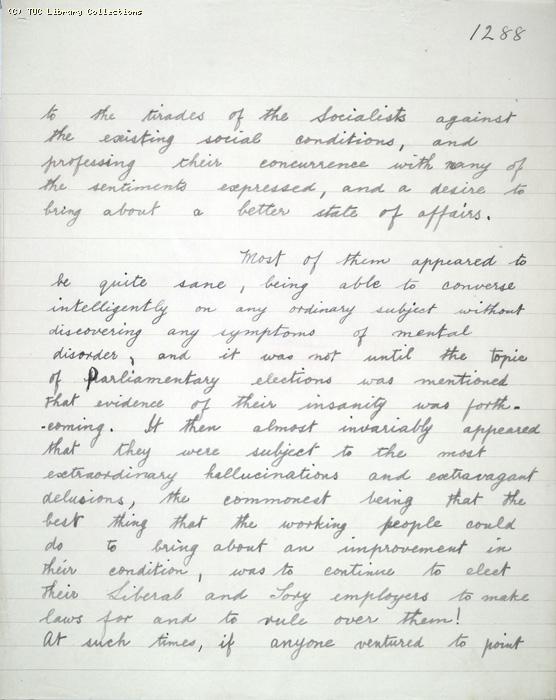 (C) TUC Library Collections
1288
to the tirades of the Socialists against
the existing social conditions, and
professing their concurrence with many of
the sentiments expressed, and a desire to
bring about a better state of affairs.
Most of them appeared to
be quite sane, being able to converse
intelligently on any ordinary subject without
discovering any symptoms of mental
disorder, and it was not until the topic
of Parliamentary elections was mentioned
that evidence of their insanity was forth-
-coming. It then almost invariably appeared
that they were subject to the most
extraordinary hallucinations and extravagant
delusions, the commonest being that the
best thing that the working people could
do to bring about an improvement in
their condition, was to continue to elect
their Liberal and Tory employers to make
laws for and to rule over them!
At such times, if anyone ventured to point